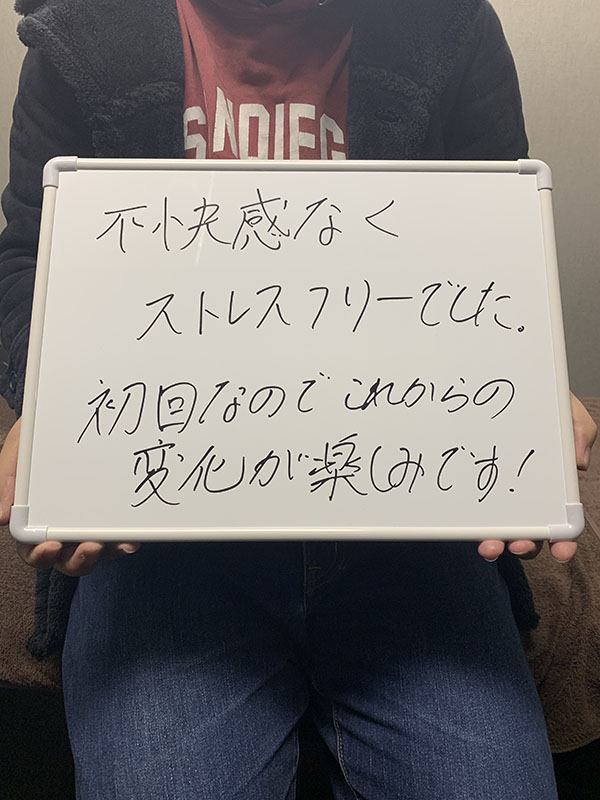 SANDIEG
不快感なく
ストレスフリーでした。
初回なのでこれからの
変化が楽しみです！